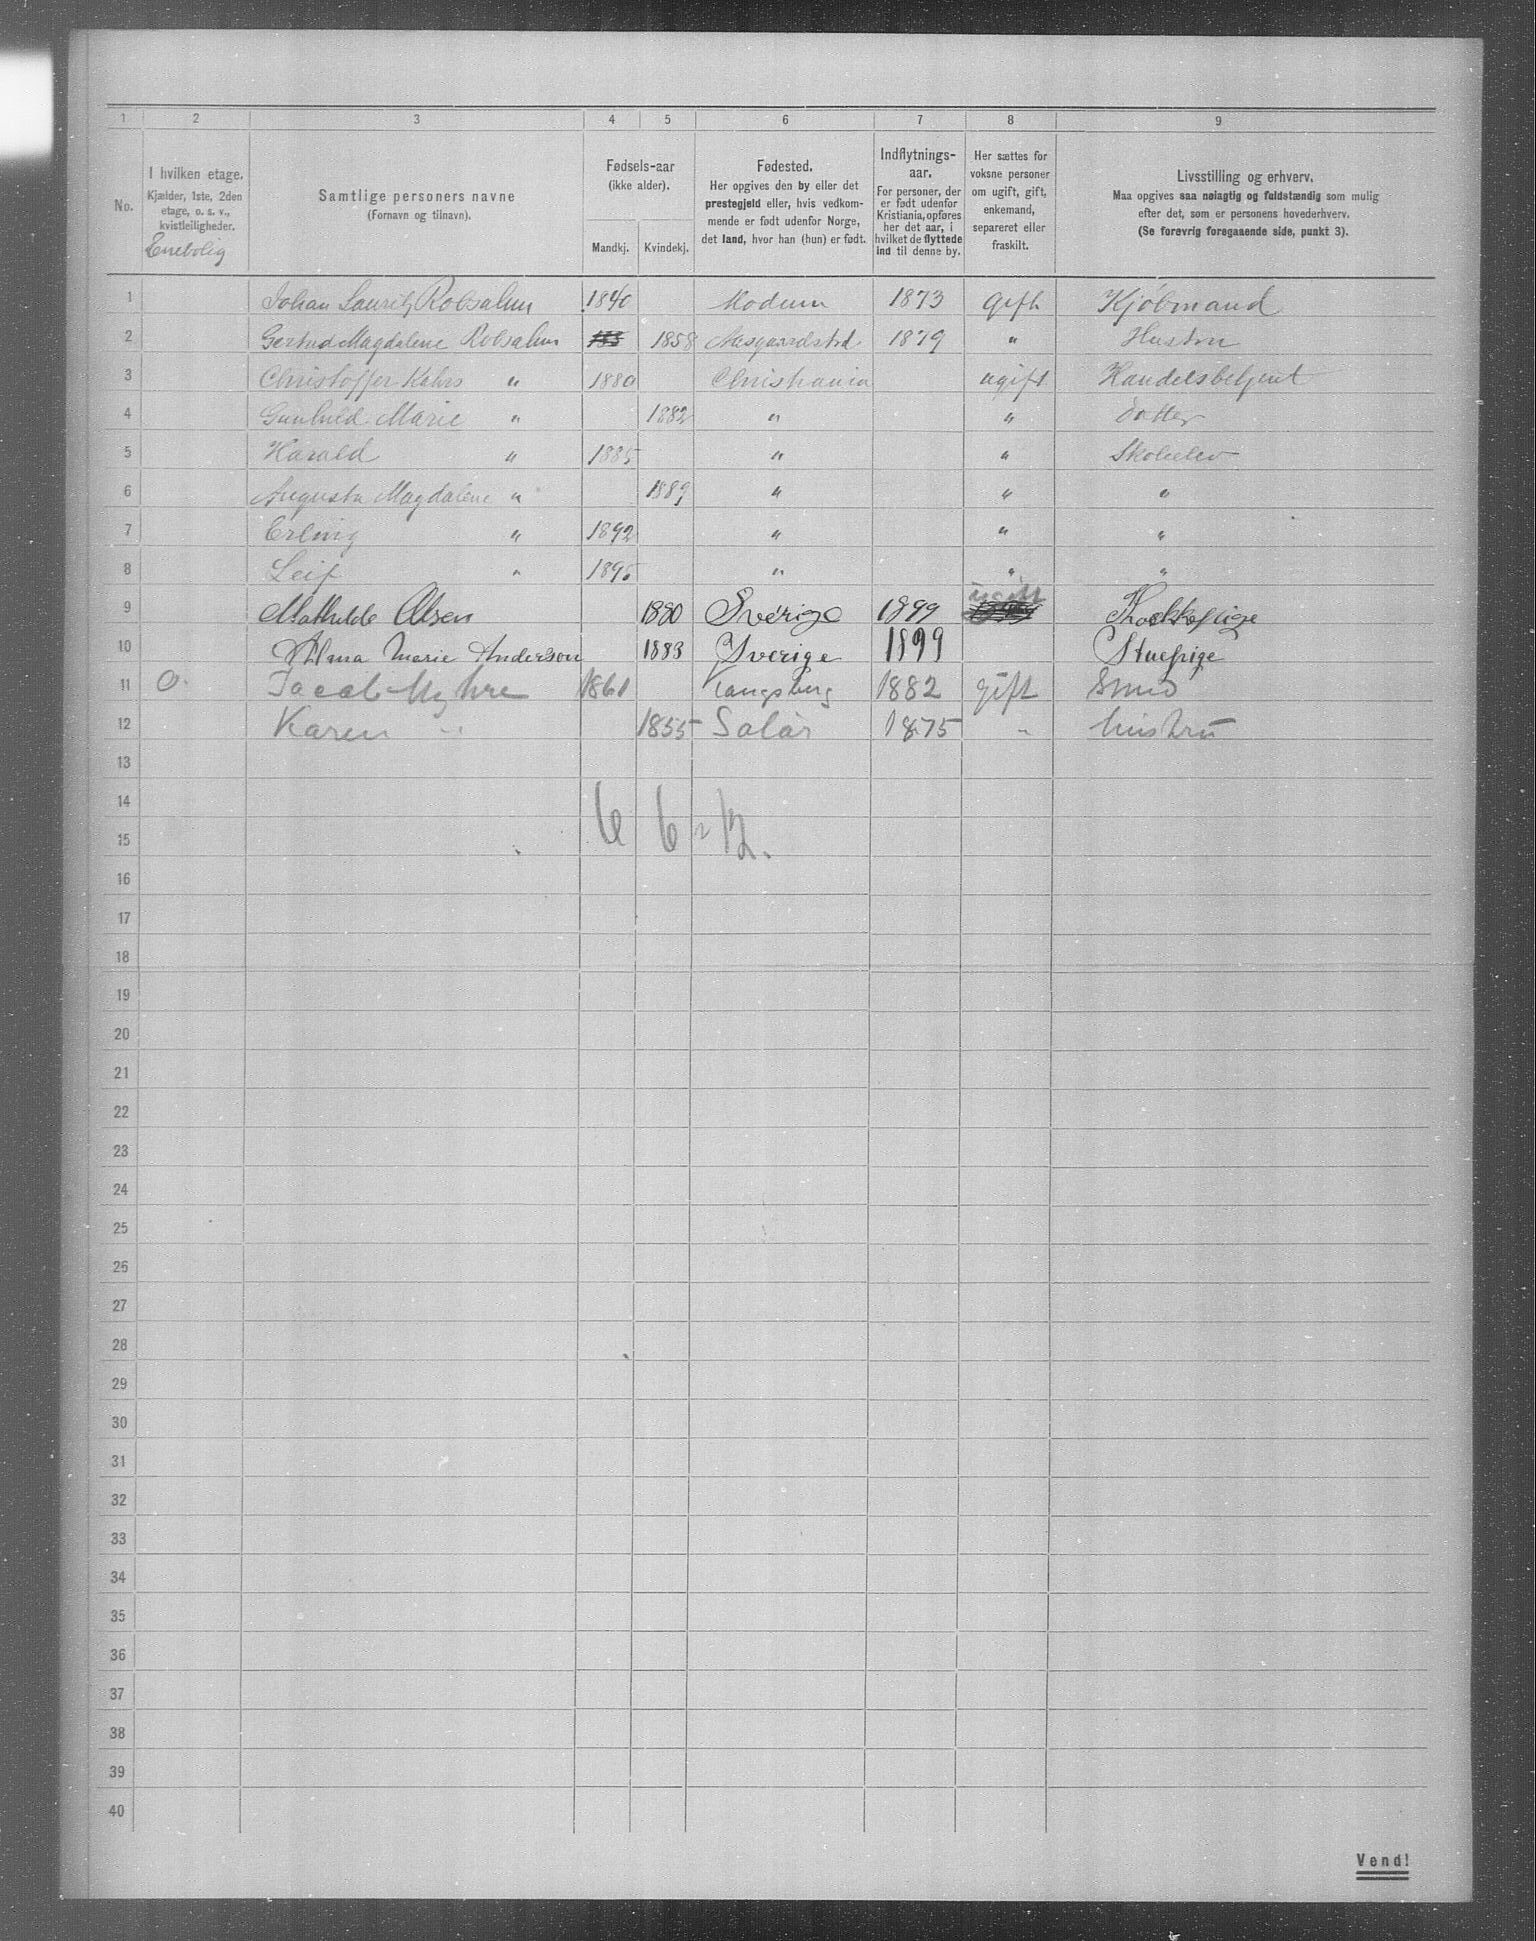 1 2 3 4 5 6 7 8 9
No.
I hvilken etage.
Kjælder, 1ste, 2den
etage, o. s. v.,
kvistleiligheder.
Enebolig
Samtlige personers navne
(Fornavn og tilnavn).
Fødsels-aar
(ikke alder).
Mandkj. Kvindekj.
Fødested.
Her opgives den by eller det
prestegjeld eller, hvis vedkom-
mende er født udenfor Norge,
det land, hvor han (hun) er født.
Indflytnings-
aar.
For personer, der
er født udenfor
Kristiania, opføres
her det aar, i
hvilket de flyttede
ind til denne by.
Her sættes for
voksne personer
om ugift, gift,
enkemand,
separeret eller
fraskilt.
Livsstilling og erhverv.
Maa opgives saa nøiagtig og fuldstændig som mulig
efter det, som er personens hovederhverv.
(Se forøvrig foregaaende side, punkt 3).
1 Johan Lauritz Robsahm 1840 Modum 1873 gift Kjøbmand
2 Gertrud Magdalene Robsahm 1858 1879 " Hustru
3 Christoffer Kahrs " 1880 Christiania ugift Handelsbetjent
4 Gunhild Marie " 1882 " " Datter
5 Harald " 1885 " " Skoleelev
6 Augusta Magdalene " 1889 " " "
7 Erling " 1892 " " "
8 Leif " 1895 " " "
9 Mathilde Olsen 1880 Sverige 1899 ugift Kokkepige
10 Alma Marie Anderson 1883 Sverige 1899 Stuepige
11 0. Jacob Myhre 1861 Tøngsberg 1882 gift Smed
12 Karen " 1855 Solør 1875 " hustru
13
14 6 6 = 12.
15
16
17
18
19
20
21
22
23
24
25
26
27
28
29
30
31
32
33
34
35
36
37
38
39
40
Vend!